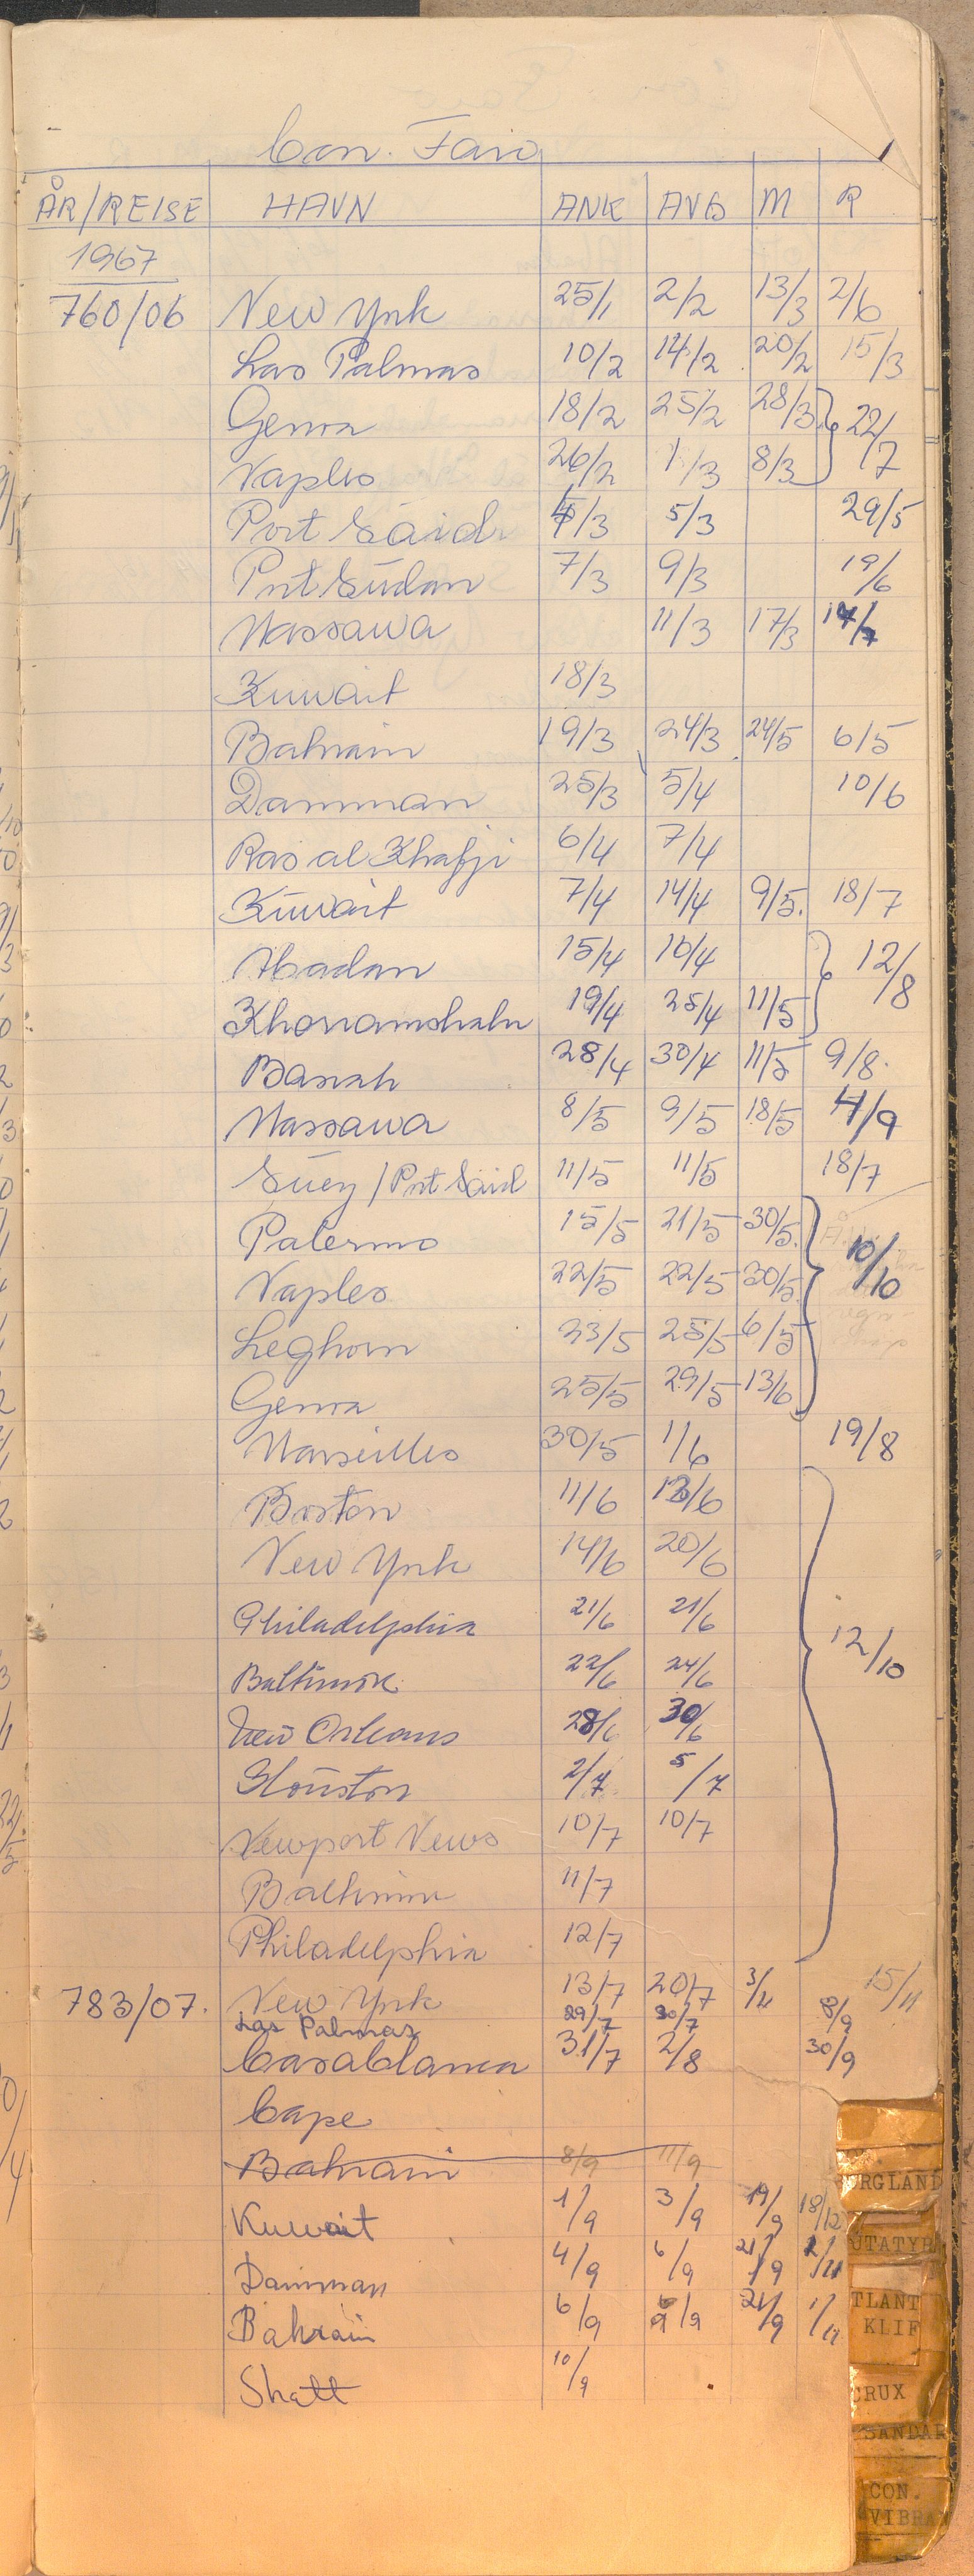 Con. Faro
ÅR/REISE HAVN ANK AVG M R
1967
760/06 New York 25/1 2/2 13/3 2/6
Las Palmas 10/2 14/2 20/2 15/3
Genoa 18/2 25/2 28/3 22/7
Naples 26/2 1/3 8/3
Port Said 4/3 5/3 29/5
Port Sudan 7/3 9/3 19/6
Massawa 11/3 17/3
Kuwait 18/3
Bahrain 19/3 24/3 24/5 6/5
Damman 25/3 5/4 10/6
Ras al Khafji 6/4 7/4
Kuwait 7/4 14/4 9/5. 18/7
Abadan 15/4 10/4 12/8
Khorramshahr 19/4 25/4 11/5
Basrah 28/4 30/4 11/5 9/8.
Massawa 8/5 9/5 18/5 4/9
Suez/Port Said 11/5 11/5 18/7
Palermo 15/5 21/5 30/5. 10/10
Naples 22/5 22/5 30/5.
Leghorn 23/5 25/5 6/5
Genoa 25/5 29/5 13/6
Marseilles 30/5 1/6 19/8
Boston 11/6 13/6
New York 14/6 20/6
Philadelphia 21/6 21/6
Baltimore 22/6 24/6 12/10
New Orleans 28/6 30/6
Houston 2/7 5/7
Newport News 10/7 10/7
Baltimore 11/7
Philadelphia 12/7
783/07. New York 13/7 20/7 15/11
Las Palmas 29/7 30/7 8/9
Casablanca 31/7 2/8 30/9
Cape
Bahrain 8/9 11/9
Kuwait 1/9 3/9 19/9 18/12
Damman 4/9 6/9 21/9
Bahrain 6/9 9/9 21/9
Shatt 10/9
ORGLAND
TLANT
KLIF
CRUX
SANDAR
CON.
VIBRA